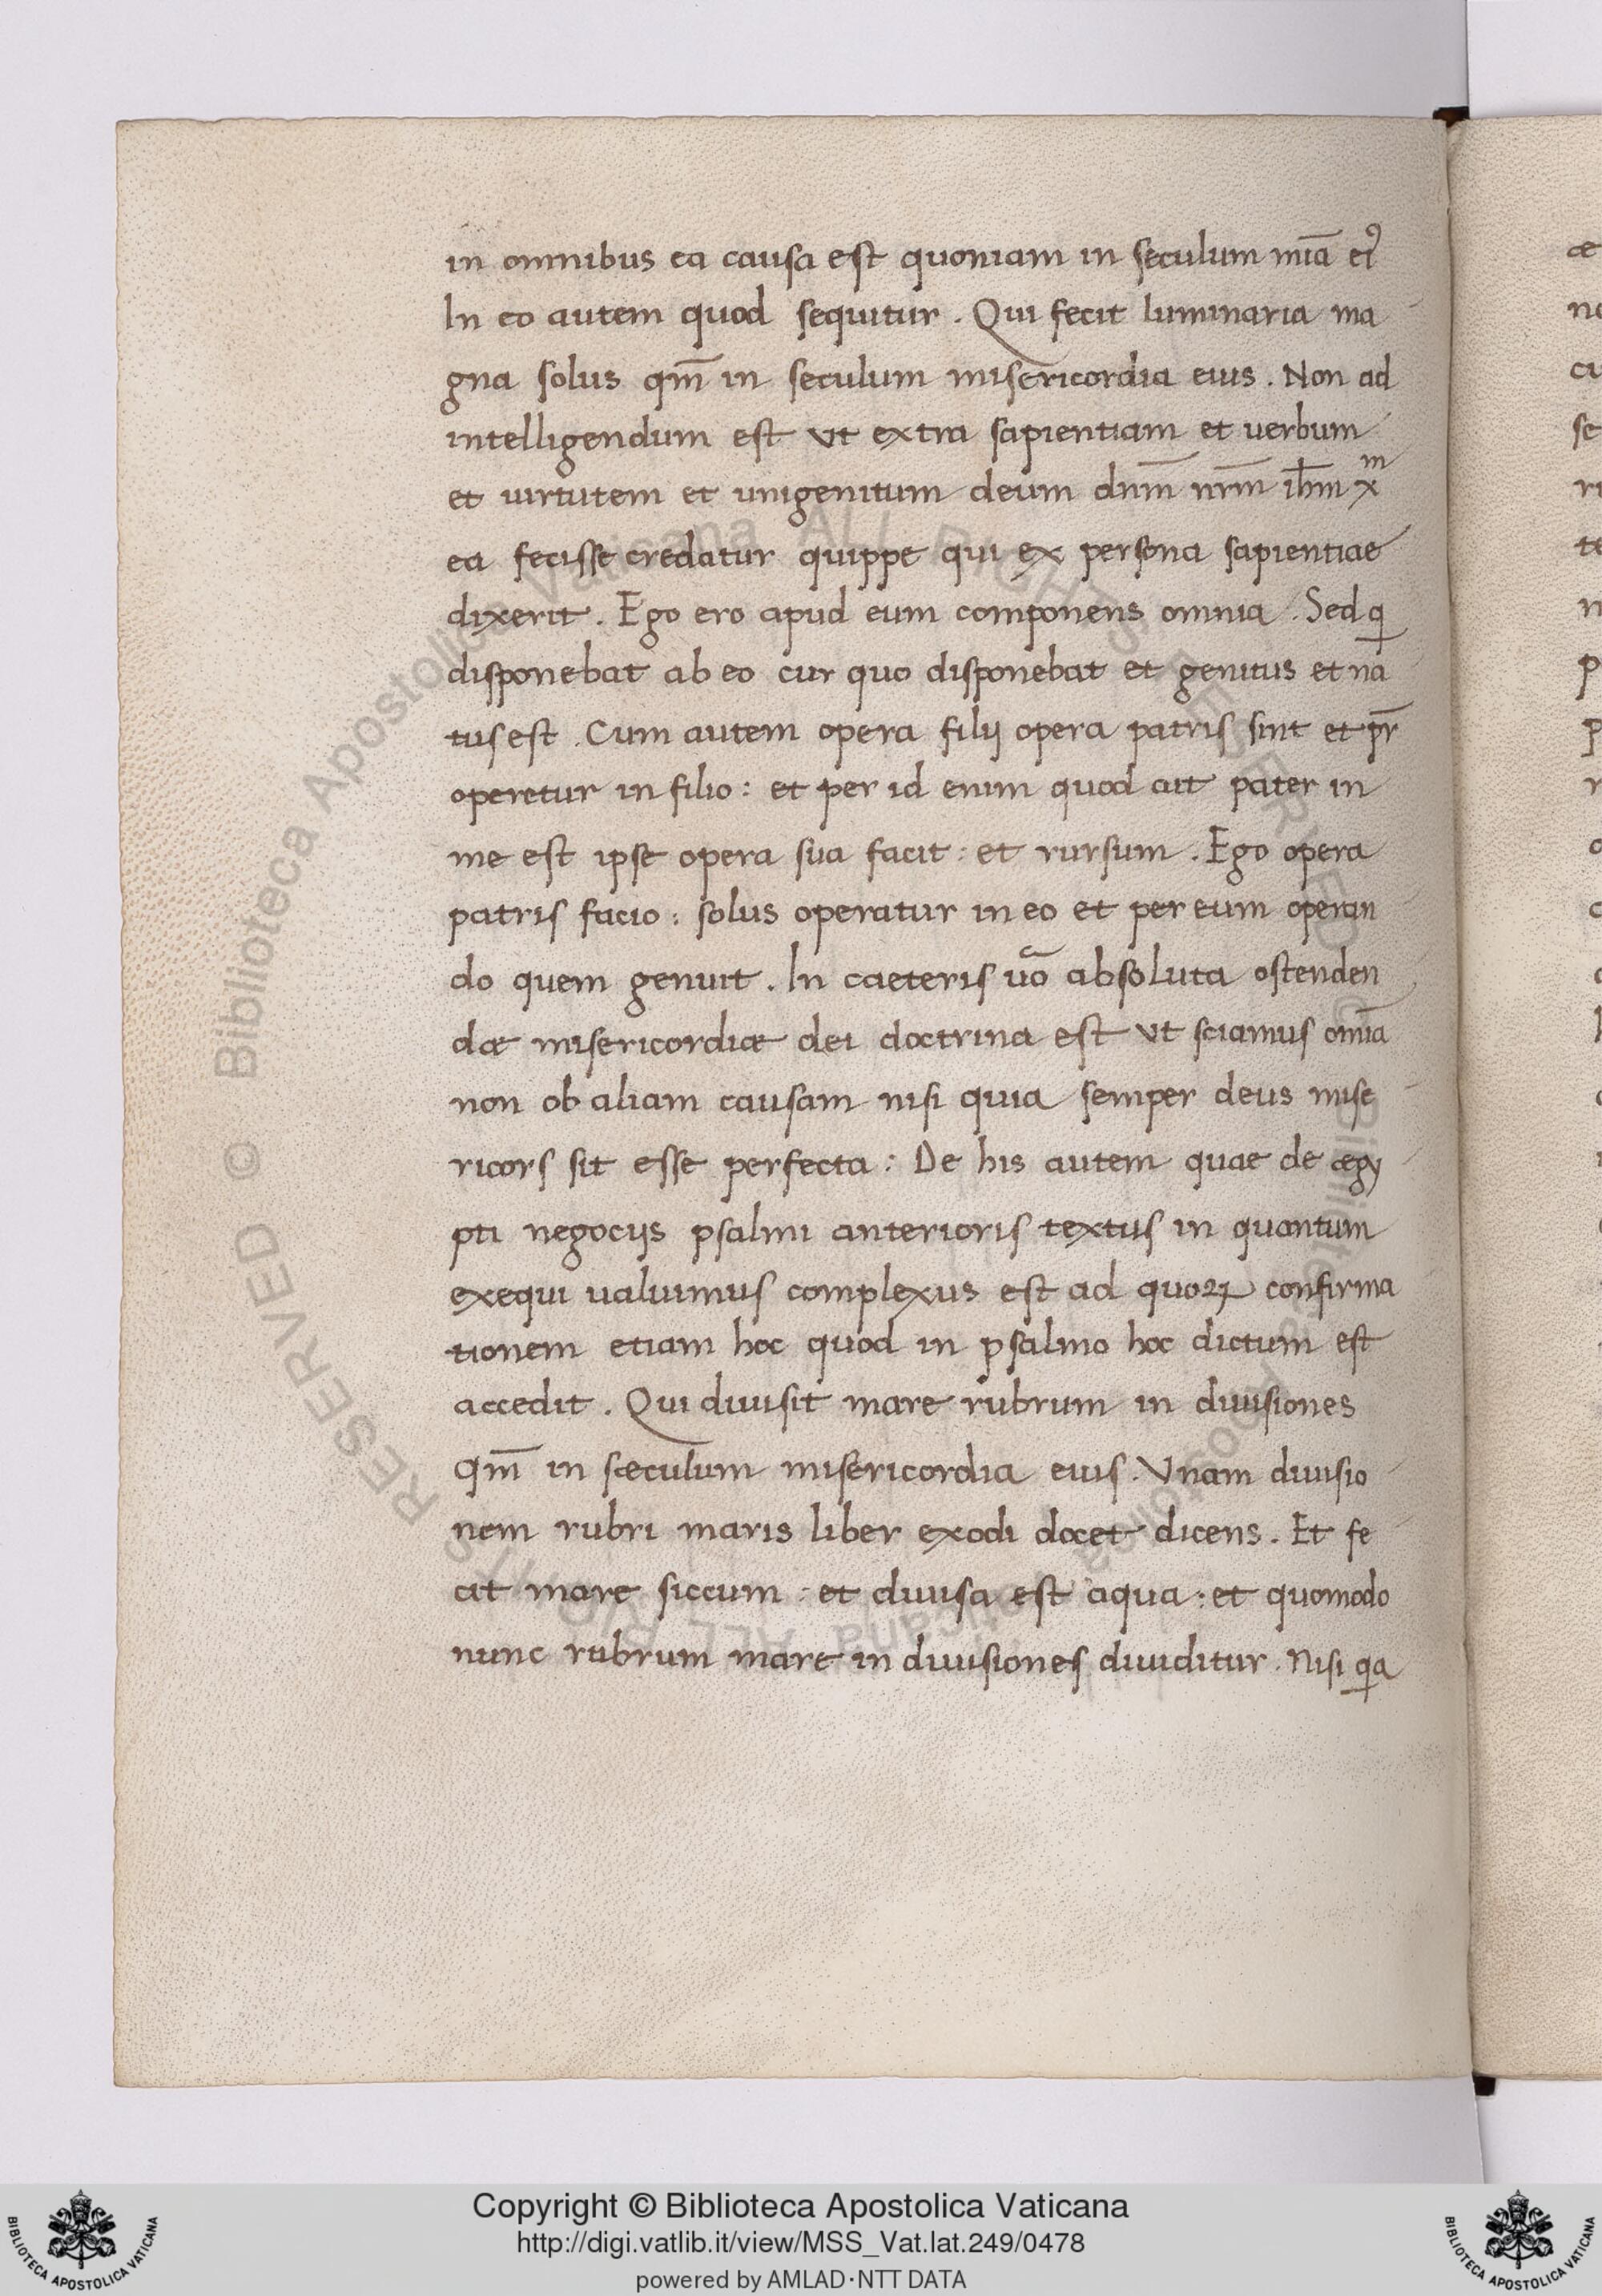 in omnibus ea causa est quoniam in seculum mia̅ eiꝰ
In eo autem quod sequitur . Qui fecit luminaria ma
gna solus qm̅ in seculum misericordia eius . Non ad
intelligendum est ut extra sapientiam et uerbum
et uirtutem et unigenitum deum dnm̅ nrm̅ ihm̅ xᵐ
ea fecisse credatur quippe qui ex persona sapientiae
dixerit . Ego ero apud eum componens omnia . Sed q
disponebat ab eo cur quo disponebat et genitus et na
tus est . Cum autem opera filij opera patris sint et pr̅
operetur in filio : et per id enim quod ait pater in
me est ipse opera sua facit : et rursum . Ego opera
patris facio : solus operatur in eo et per eum operan
do quem genuit . In caeteris uo̅ absoluta ostenden
dæ misericordiæ dei doctrina est ut sciamus omia̅
non ob aliam causam nisi quia semper deus mise
ricors sit esse perfecta : De his autem quae de ægy
pti negocijs psalmi anterioris textus in quantum
exequi ualuimus complexus est ad quoꝝ confirma
tionem etiam hoc quod in psalmo hoc dictum est
accedit . Qui diuisit mare rubrum in diuisiones
qm̅ in sæculum misericordia eius . Vnam diuisio
nem rubri maris liber exodi docet dicens . Et fe
cit mare siccum : et diuisa est aqua : et quomodo
nunc rubrum mare in diuisiones diuiditur . Nisi qa
Copyright © Biblioteca Apostolica Vaticana
http://digi.vatlib.it/view/MSS_Vat.lat.249/0478
powered by AMLAD·NTT DATA